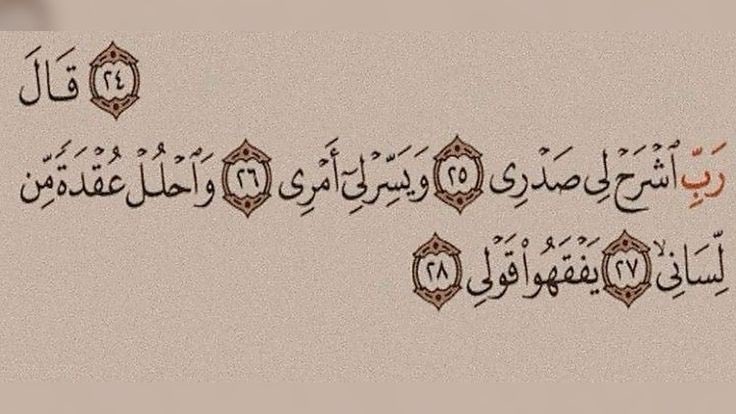 ٢٤ قَالَ
رَبِّ ٱشْرَحْ لِى صَدْرِى ٢٥ وَيَسِّرْ لِىٓ أَمْرِى ٢٦ وَٱحْلُلْ عُقْدَةً مِّن
لِّسَانِى ٢٧ يَفْقَهُوا۟ قَوْلِى ٢٨